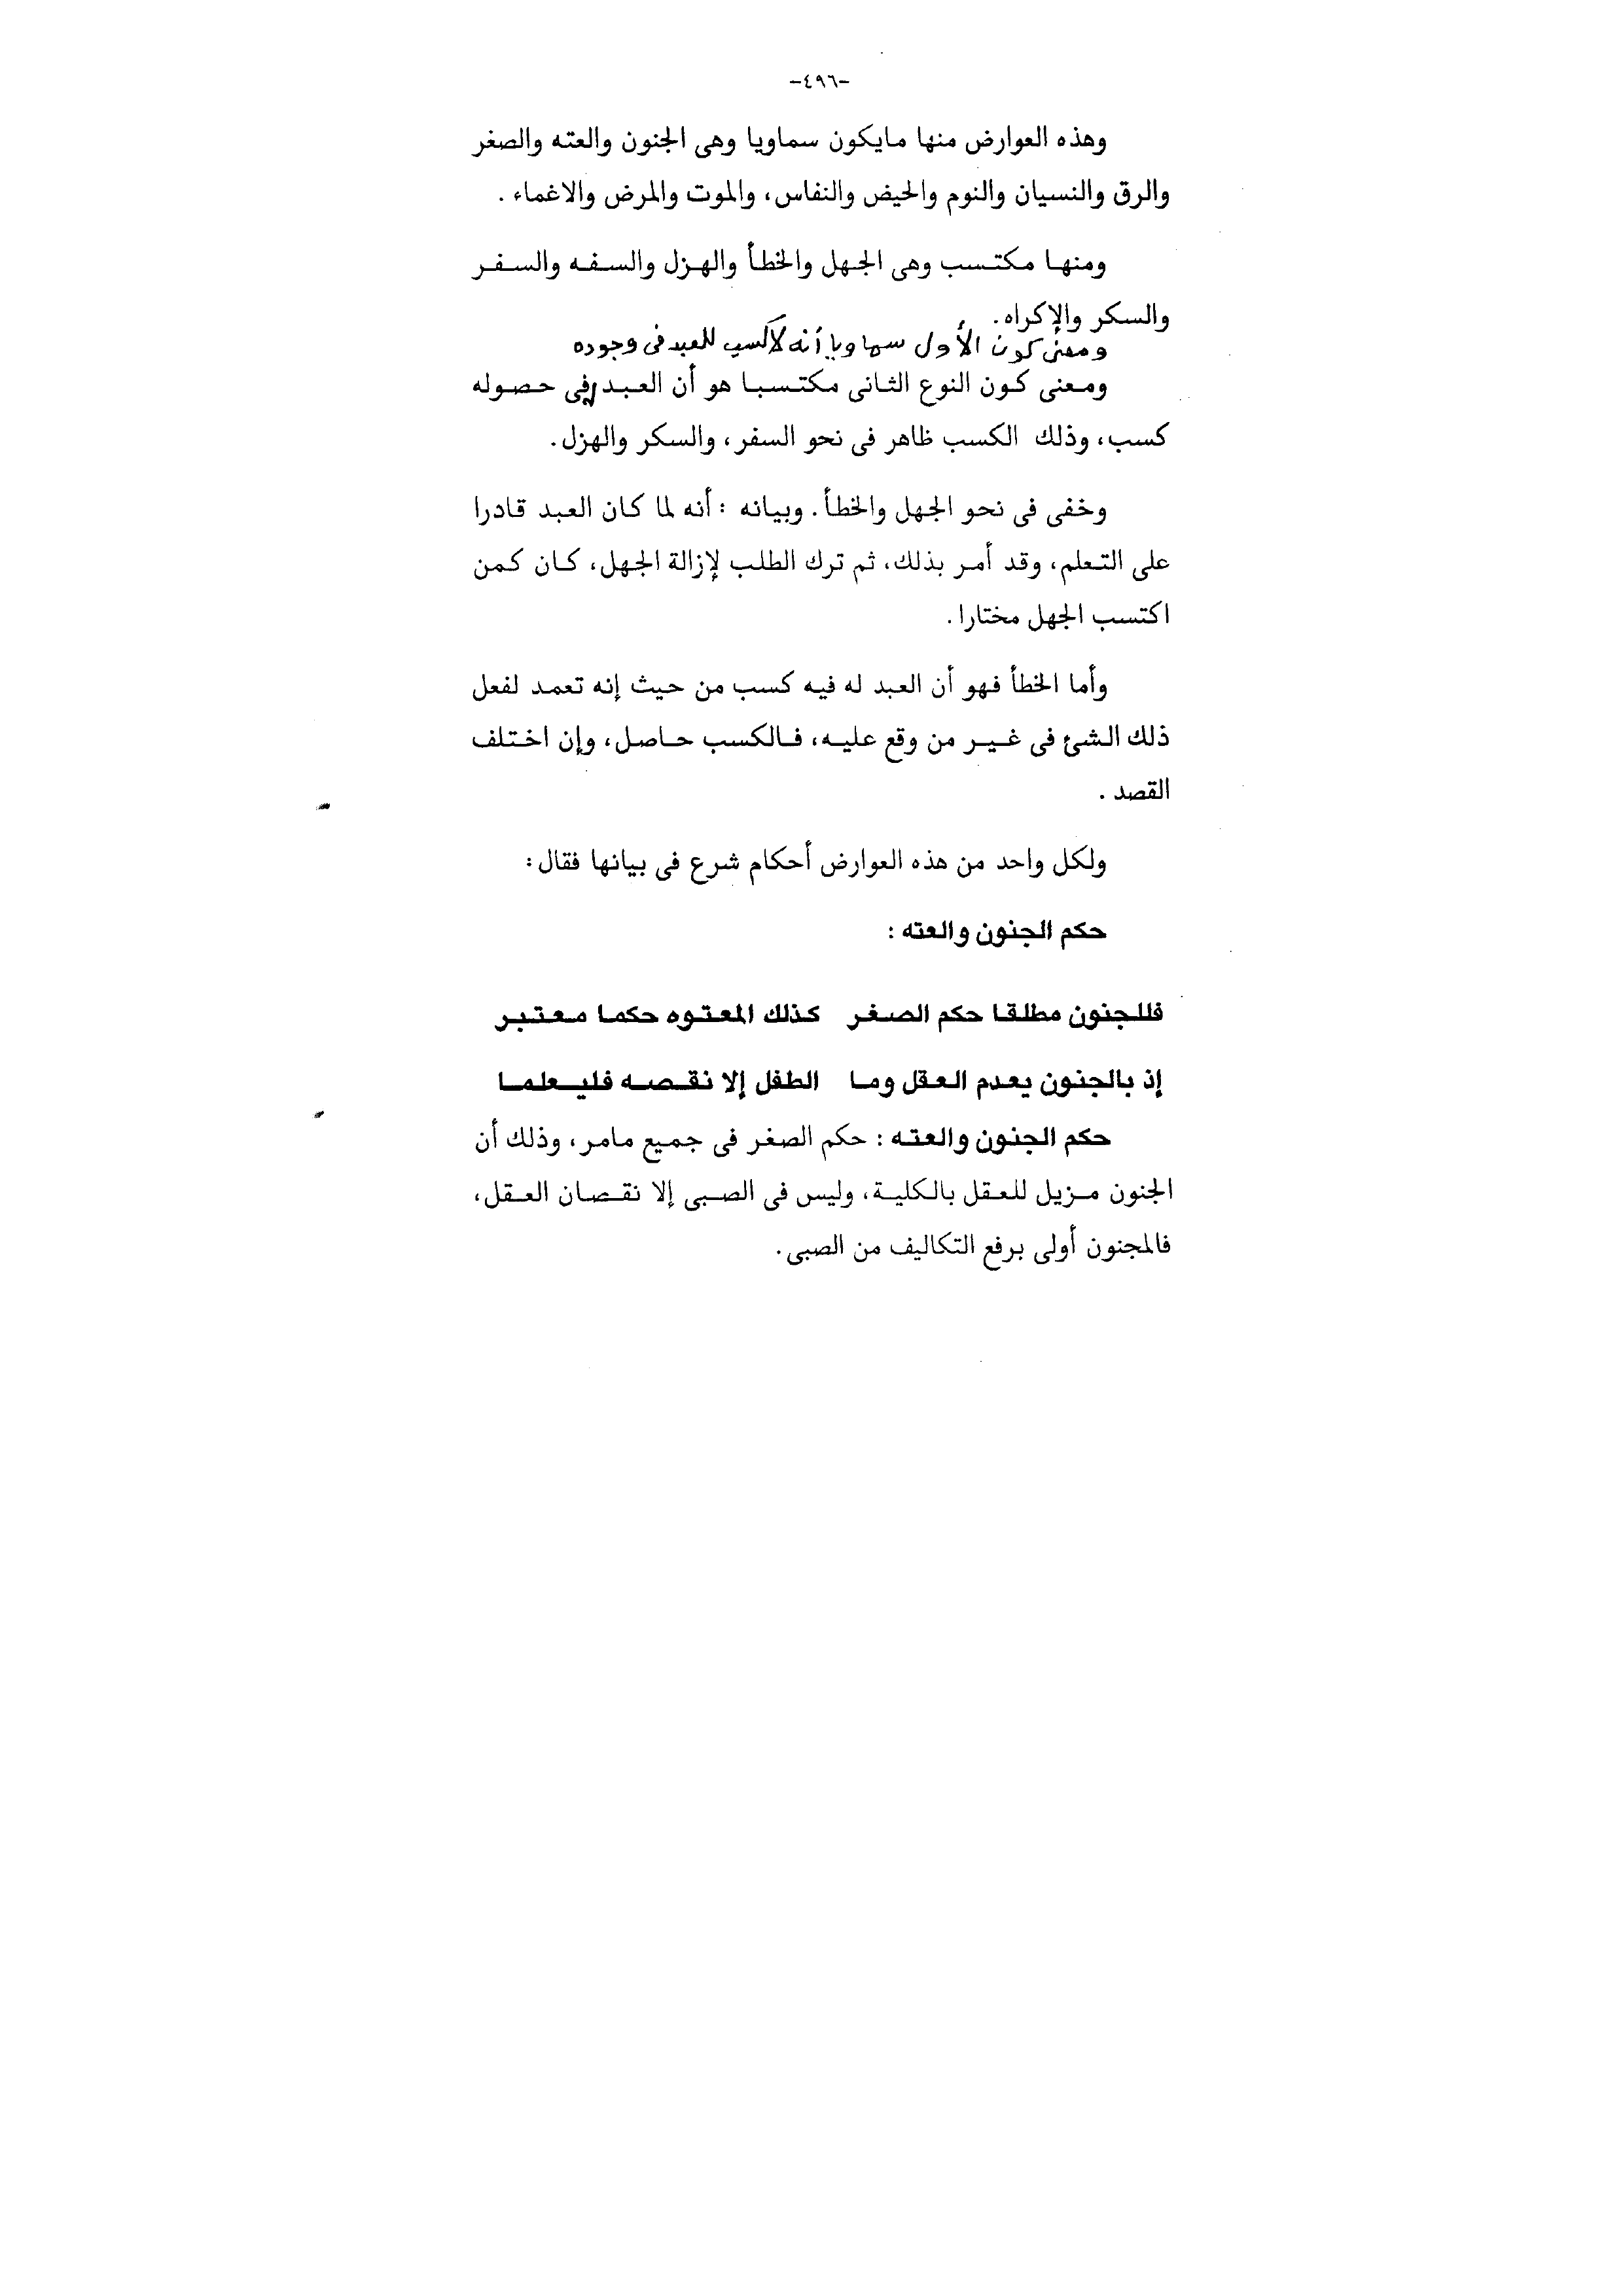 -٤٩٦-
وهذه العوارض منها مايكون سماويا وهى الجنون والعته والصغر
والرق والنسيان والنوم والحيض والنفاس، والموت والمرض والاغماء .
ومنها مكتسب وهى الجهل والخطأ والهزل والسفه والسفر
والسكر والإكراه.
ومعنى كون الأول سماويا أنه لا كسب للعبد فى وجوده
ومعنى كون النوع الثانى مكتسبا هو أن العبد فى حصوله
كسب، وذلك الكسب ظاهر فى نحو السفر، والسكر والهزل.
وخفى فى نحو الجهل والخطأ. وبيانه : أنه لما كان العبد قادرا
على التعلم، وقد أمر بذلك، ثم ترك الطلب لإزالة الجهل، كان كمن
اكتسب الجهل مختارا.
وأما الخطأ فهو أن العبد له فيه كسب من حيث إنه تعمد لفعل
ذلك الشئ فى غير من وقع عليه، فالكسب حاصل، وإن اختلف
القصد .
ولكل واحد من هذه العوارض أحكام شرع فى بيانها فقال:
حكم الجنون والعته :
فللجنون مطلقا حكم الصغر كذلك المعتوه حكما معتبر
إذ بالجنون يعدم العقل وما الطفل إلا نقصه فليعلما
حكم الجنون والعته : حكم الصغر فى جميع مامر، وذلك أن
الجنون مزيل للعقل بالكلية، وليس فى الصبى إلا نقصان العقل،
فالمجنون أولى برفع التكاليف من الصبى.